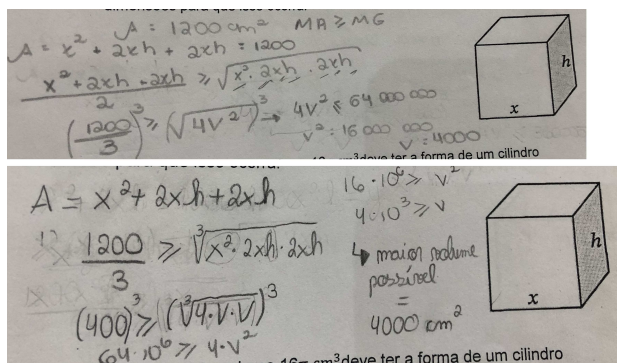 A = 1200 cm² MA ≥ MG
A = x² + 2xh + 2xh = 1200
x² + 2xh + 2xh / 2 ≥ √x² · 2xh · 2xh
(1200/3)³ ≥ (√4V²)³ → 4V² ≤ 64 000 000
V² = 16 000 000
V = 4000
h
x
cm³deve ter a forma de um cilindro
A = x² + 2xh + 2xh
1200/3 ≥ ∛x² · 2xh · 2xh
(400)³ ≥ (∛4·V·V)³
64·10⁶ ≥ 4·V²
16 · 10⁶ ≥ V²
4·10³ ≥ V
↳ maior volume
possível
=
4000 cm²
h
x
16π cm³deve ter a forma de um cilindro